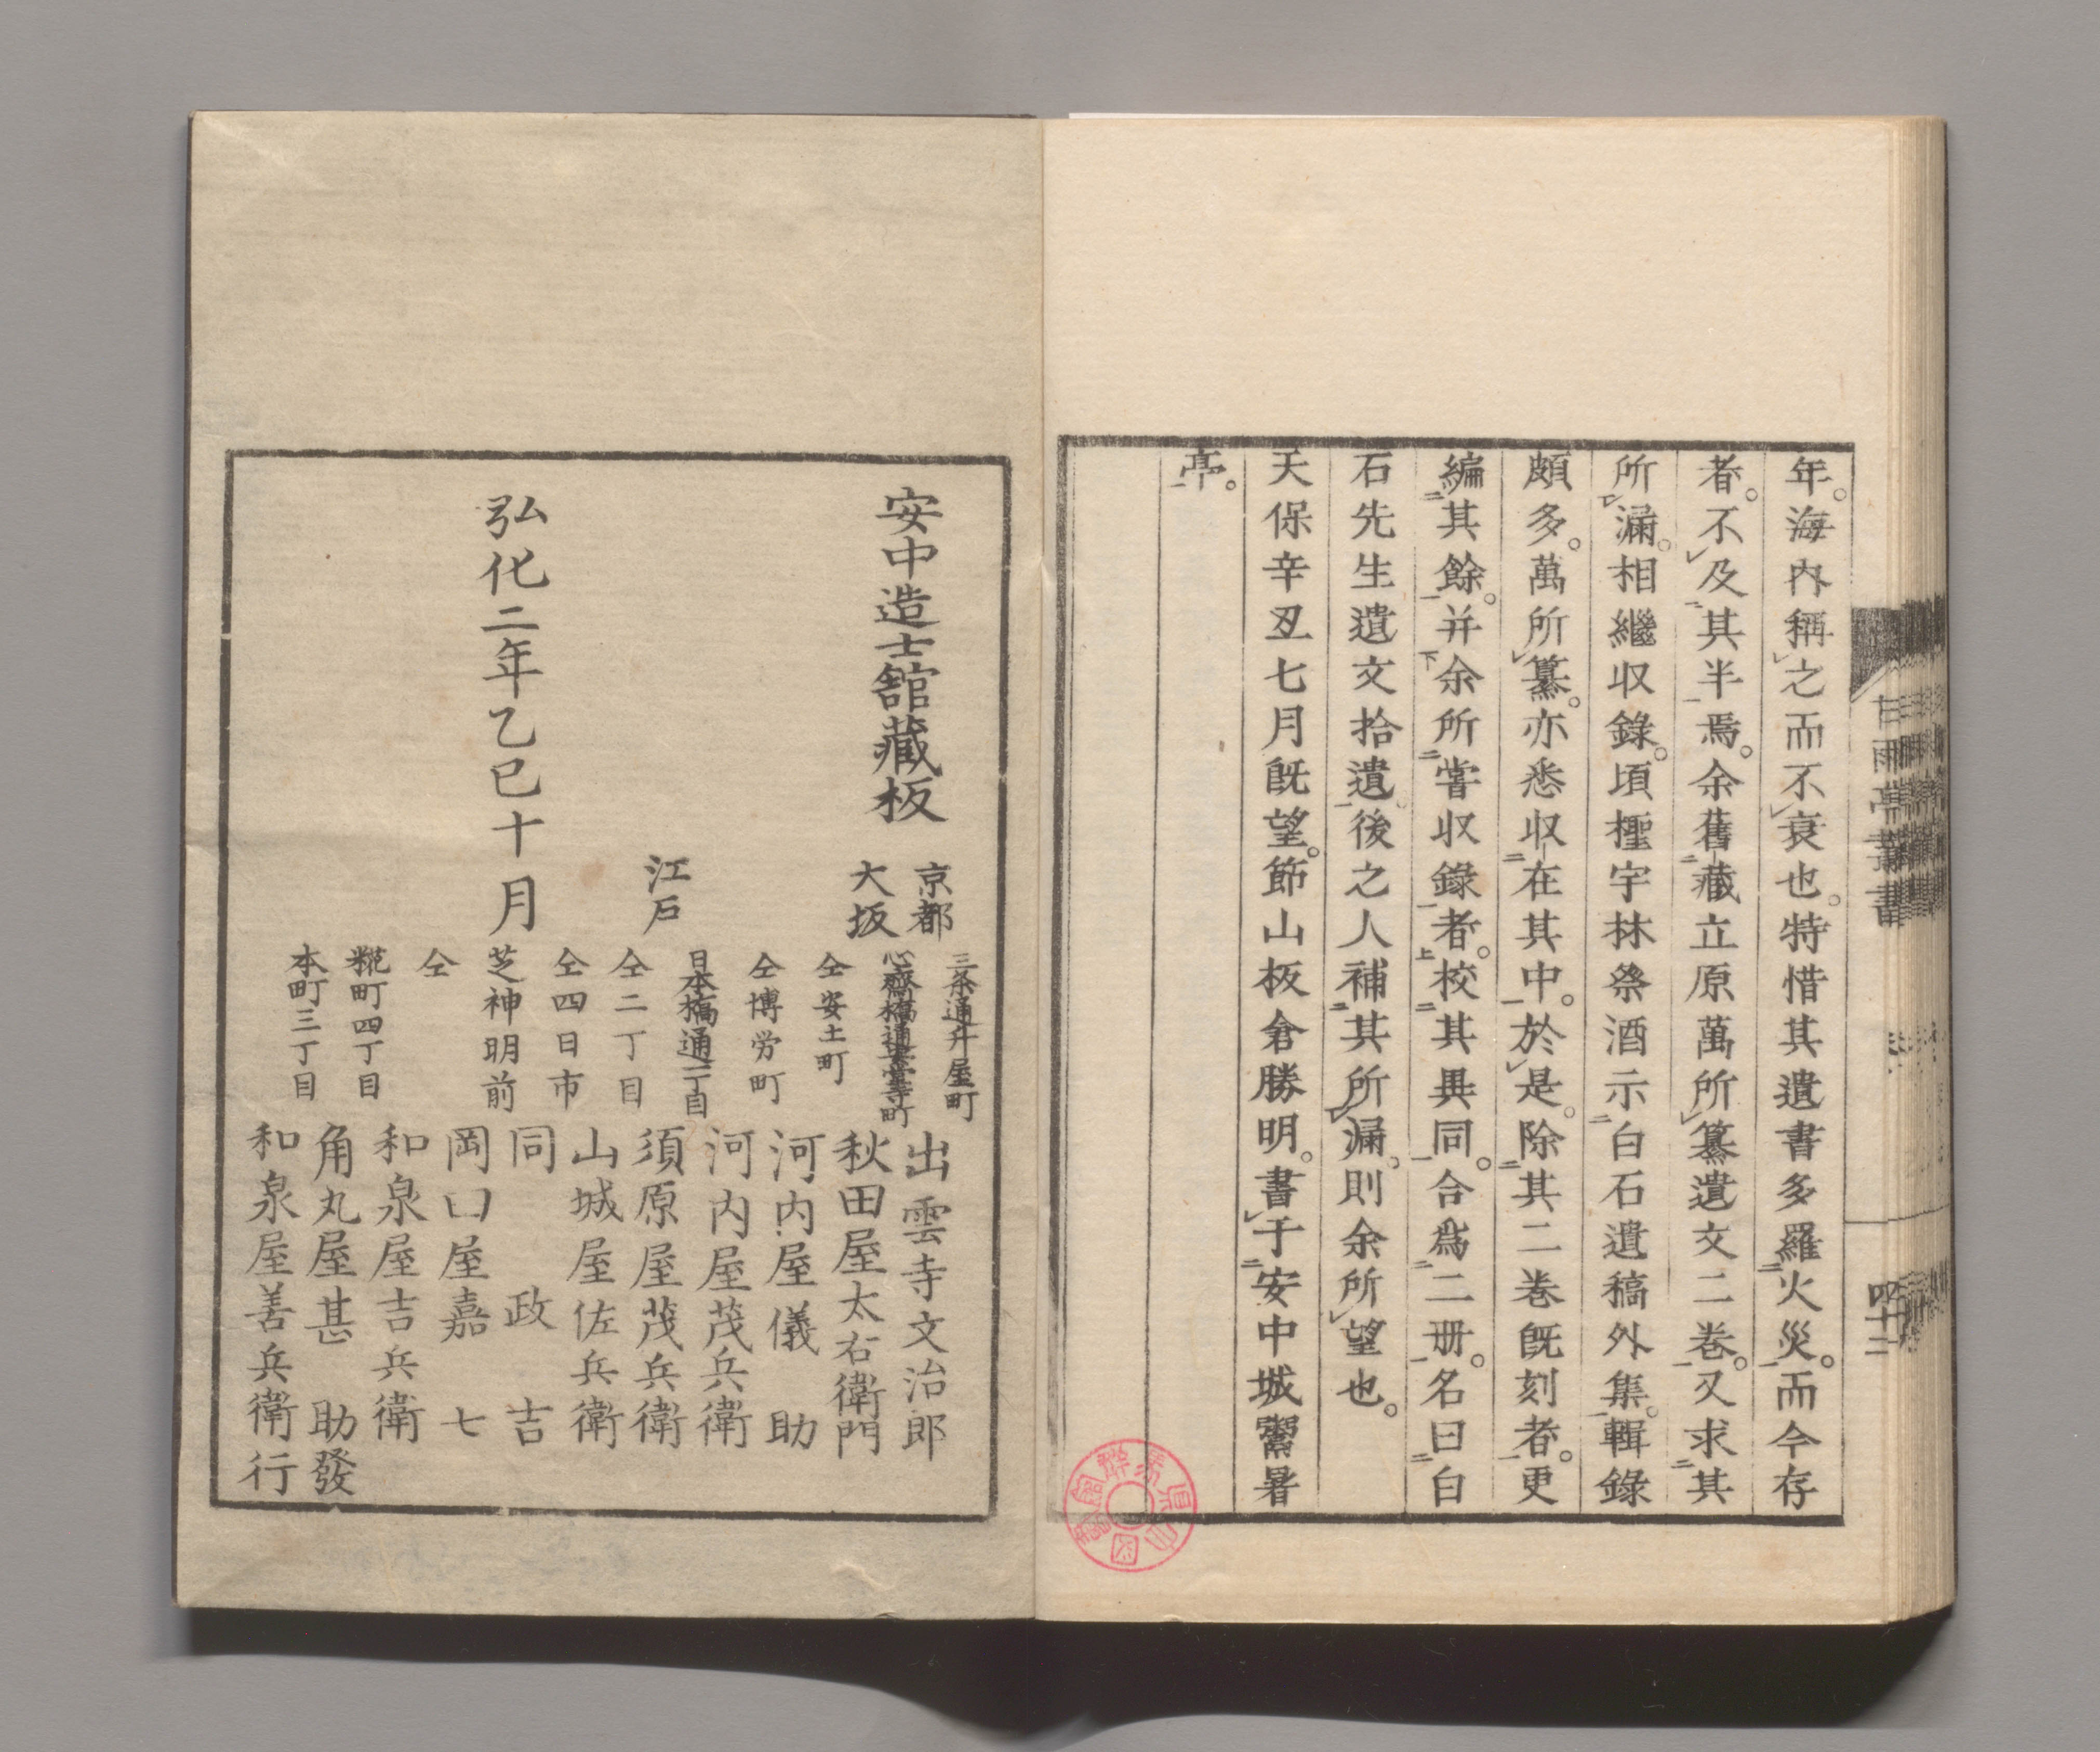 年。海內稱之而不衰也。特惜其遺書多羅火災。而今存
者。不及其半焉。余舊藏立原萬所纂遺文二卷。又求其
所漏。相繼収錄。頃檉宇林祭酒示白石遺稿外集。輯錄
頗多。萬所纂。亦悉収在其中。於是。除其二巻既刻者。更
編其餘。并余所嘗収錄者。校其異同。合爲二册。名曰白
石先生遺文拾遺。後之人補其所漏。則余所望也。
天保辛丑七月既望。節山板倉勝明。書于安中城鬻暑
亭。
甘雨亭叢書
四十二
安中造士舘藏板
弘化二年乙巳十月
京都 三条通升屋町 出雲寺文治郎
大坂 心齋橋通 秋田屋太右衛門
仝安土町 河内屋儀助
仝博労町 河内屋茂兵衛
江戸 日本橋通一丁目 須原屋茂兵衛
仝二丁目 山城屋佐兵衛
仝四日市 同政吉
芝神明前 岡田屋嘉七
仝 和泉屋吉兵衛
糀町四丁目 角丸屋甚助發
本町三丁目 和泉屋善兵衛行